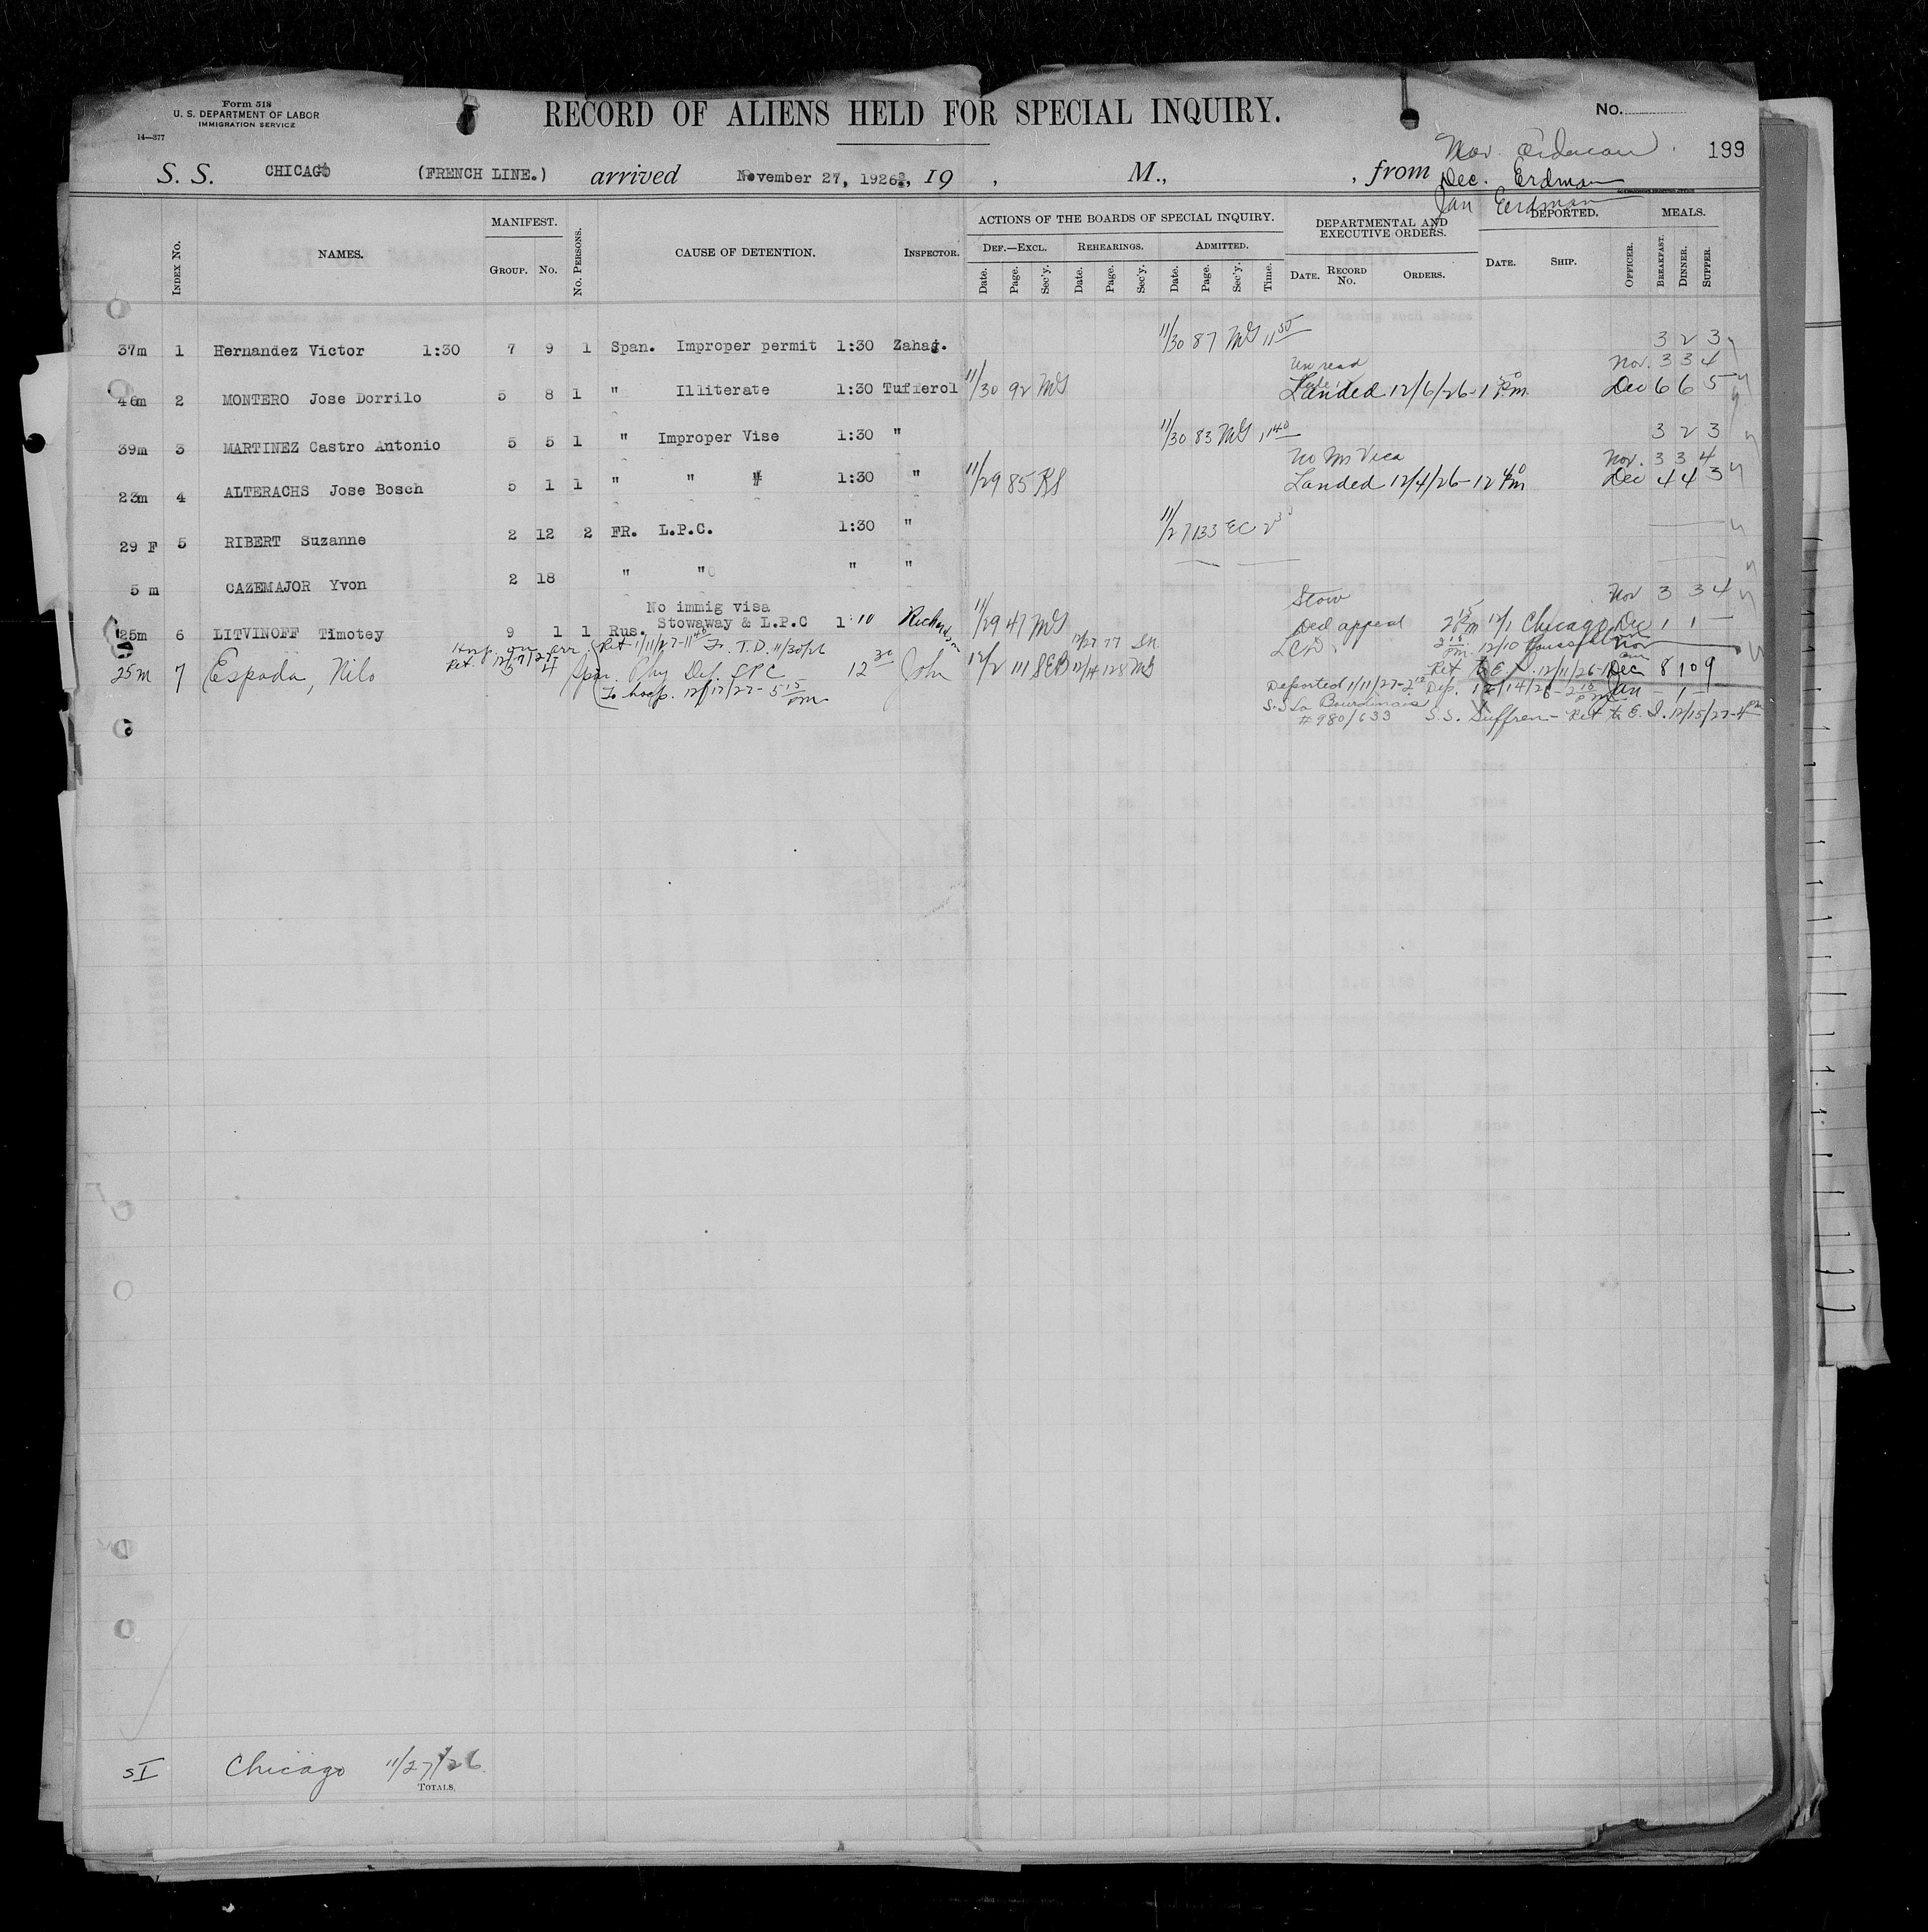 Form 518
U. S. DEPARTMENT OF LABOR
IMMIGRATION SERVICE
14—377
RECORD OF ALIENS HELD FOR SPECIAL INQUIRY.
No.
199
S. S. CHICAGO (FRENCH LINE.) arrived November 27, 1926, 19 , M., , from
Nov. Erdman
Dec. Erdman
Jan Erdman
INDEX No. NAMES. MANIFEST. GROUP. No. No. PERSONS. CAUSE OF DETENTION. INSPECTOR.
ACTIONS OF THE BOARDS OF SPECIAL INQUIRY. DEF.—EXCL. REHEARINGS. ADMITTED.
Date. Page. Sec'y. Date. Page. Sec'y. Date. Page. Sec'y. Time.
DEPARTMENTAL AND EXECUTIVE ORDERS. DATE. RECORD No. ORDERS.
DEPORTED. DATE. SHIP. OFFICER.
MEALS. BREAKFAST. DINNER. SUPPER.
37m 1 Hernandez Victor 1:30 7 9 1 Span. Improper permit 1:30 Zahag. 11/30 87 MG 11 3 2 3
Nov. 3 3 4
46m 2 MONTERO Jose Dorrilo 5 8 1 " Illiterate 1:30 Tufferol 11/30 92 MG Landed 12/6/26-1 pm Dec 6 6 5
39m 3 MARTINEZ Castro Antonio 5 5 1 " Improper Vise 1:30 " 11/30 83 MG 1 40 3 2 3
No Im Vica Nov. 3 3 4
23m 4 ALTERACHS Jose Bosch 5 1 1 " " " 1:30 " 11/29 85 RS Landed 12/4/26-12 40 pm Dec 4 4 3
29 F 5 RIBERT Suzanne 2 12 2 FR. L.P.C. 1:30 " 11/27 133 EC 2 30
5 m CAZEMAJOR Yvon 2 18 " " " "
No immig visa Stow Nov 3 3 4
25m 6 LITVINOFF Timotey 9 1 1 Rus. Stowaway & L.P.C 1 10 Richards 11/29 47 MG Ded appeal 12/1 Chicago Dec 1 1 —
Hosp. on arr. Ret 1/11/27-11 40 Fr. T.D. 11/30/26
25m 7 Espada, Nilo 5 4 Span. Phy Def. LPC 12 30 John 12/2 111 SEB 12/14 128 MG
To hosp. 12/17/27-5 15 pm
LCD. 12/10
Ret to E.I. 12/11/26 Dec 8 10 9
Deported 1/11/27-2 Dep. 12/14/26-2 15 pm Jan - 1 -
S.S. La Bourdonnais
#980/633 S.S. Suffren- Ret to E.I. 12/15/27-4 pm
SI Chicago 11/27/26
TOTALS.